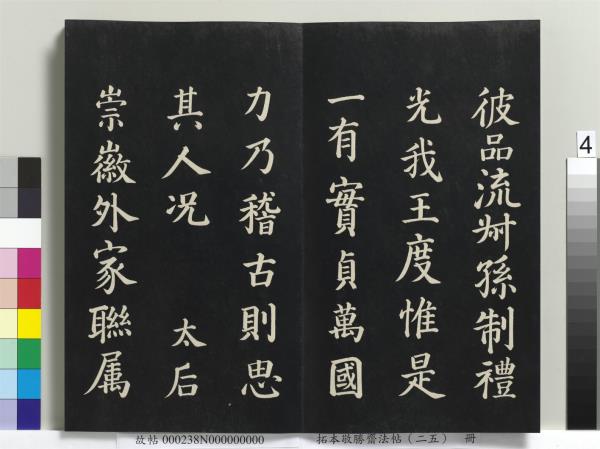 彼品流叔孫制禮
光我王度惟是
一有實貞萬國
力乃稽古則思
其人况 太后
崇徽外家聯属
4
故帖 000238N000000000 拓本敬勝齋法帖（二五） 冊